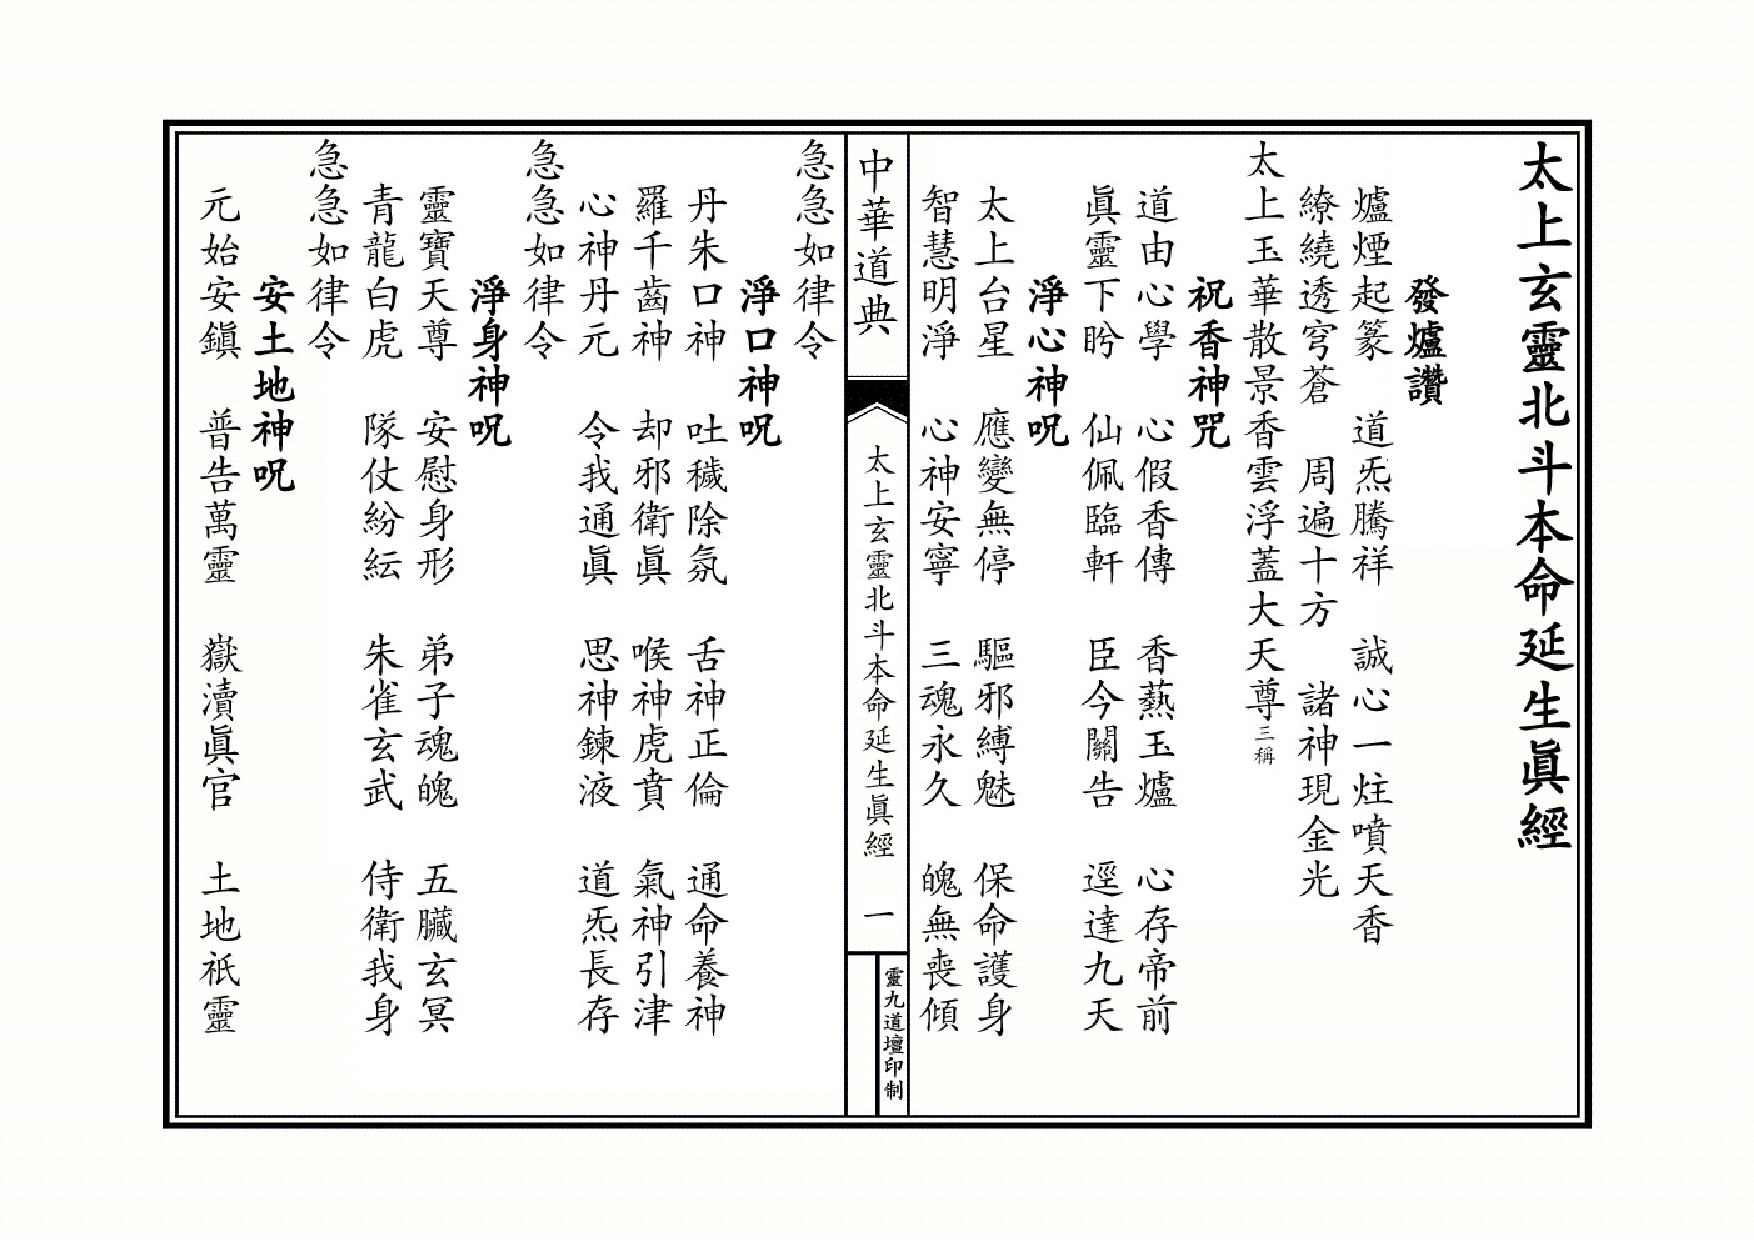 太上玄靈北斗本命延生眞經
發爐讚
爐煙起篆　道炁騰祥　誠心一炷噴天香
繚繞透穹蒼　周遍十方　諸神現金光
太上玉華散景香雲浮蓋大天尊三稱
祝香神咒
道由心學　心假香傳　香爇玉爐　心存帝前
眞靈下盼　仙佩臨軒　臣今關告　逕達九天
淨心神呪
太上台星　應變無停　驅邪縛魅　保命護身
智慧明淨　心神安寧　三魂永久　魄無喪傾
中華道典
太上玄靈北斗本命延生眞經　一
靈九道壇印制
急急如律令
淨口神呪
丹朱口神　吐穢除氛　舌神正倫　通命養神
羅千齒神　却邪衛眞　喉神虎賁　氣神引津
心神丹元　令我通眞　思神鍊液　道炁長存
急急如律令
淨身神呪
靈寶天尊　安慰身形　弟子魂魄　五臟玄冥
青龍白虎　隊仗紛紜　朱雀玄武　侍衛我身
急急如律令
安土地神呪
元始安鎭　普告萬靈　嶽瀆眞官　土地祇靈